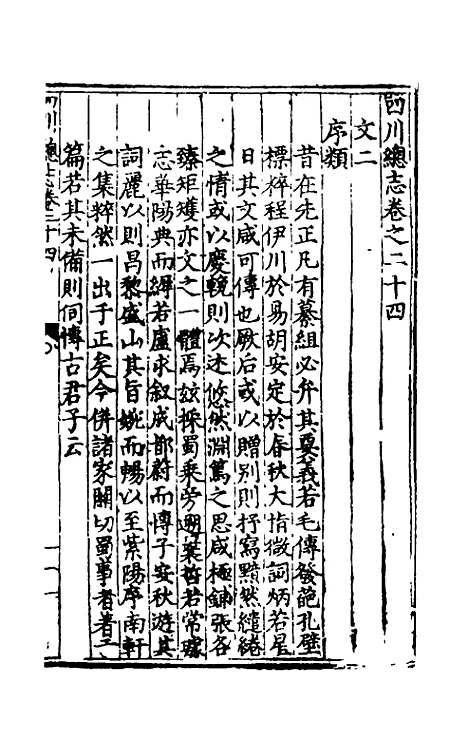 四川總志卷之二十四
文二
序類
昔在先正凡有纂組必弁其奧義若毛傳發葩孔壁
標粹程伊川於易胡安定於春秋大恉微詞炳若星
日其文咸可傳也厥后或以贈別則抒寫黯然繾綣
之情或以慶輓則次述悠然淵篤之思咸極鋪張各
臻矩矱亦文之一體焉玆採蜀乘旁遡英哲若常璩
志華陽典而縟若盧求敘成都蔚而博子安秋遊其
詞麗以則昌黎盛山其旨婉而暢以至紫陽序南軒
之集粹然一出于正矣今併諸家關切蜀事者著
篇若其未備則伺博古君子云
四川總志卷二十四